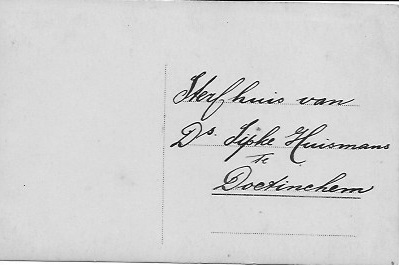 Sterfhuis van
Ds. Sipke Huismans
Te
Doetinchem